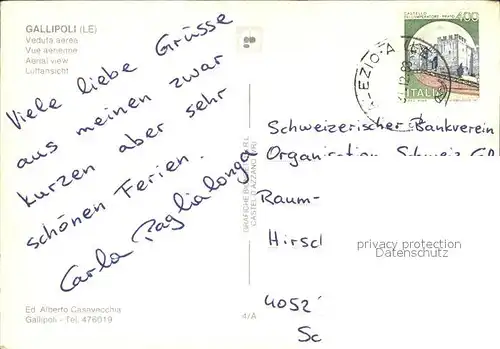 GALLIPOLI (LE)
Veduta aerea
Vue aerienne
Aerial view
Luftansicht
Viele liebe Grüsse
aus meinen zwar
kurzen aber sehr
schönen Ferien.
Carla Paglialonga
Ed. Alberto Casavecchia
Gallipoli - Tel. 476019
4/A
CASTELLO
DELL'IMPERATORE - PRATO
400
ITALIA
Schweizerischer Bankverein
Organisation Schweiz
Raum-
Hirsc
4052
Sc
privacy protection
Datenschutz